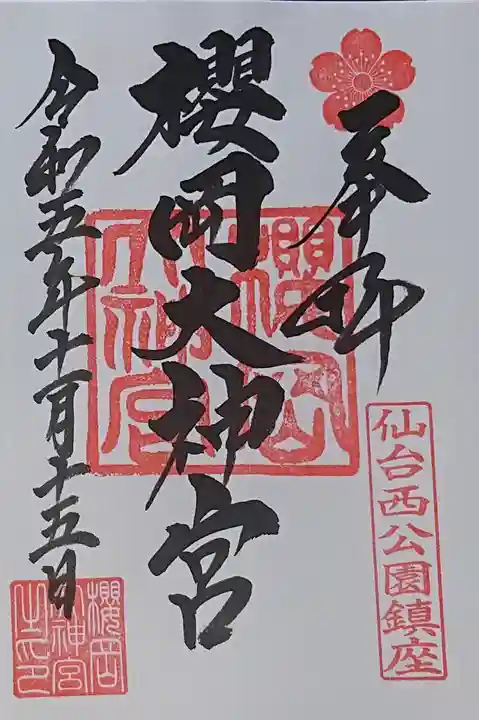 奉拝
仙台西公園鎮座
櫻岡大神宮
櫻岡
大神宮
令和五年十一月十五日
櫻岡
大神宮
之印